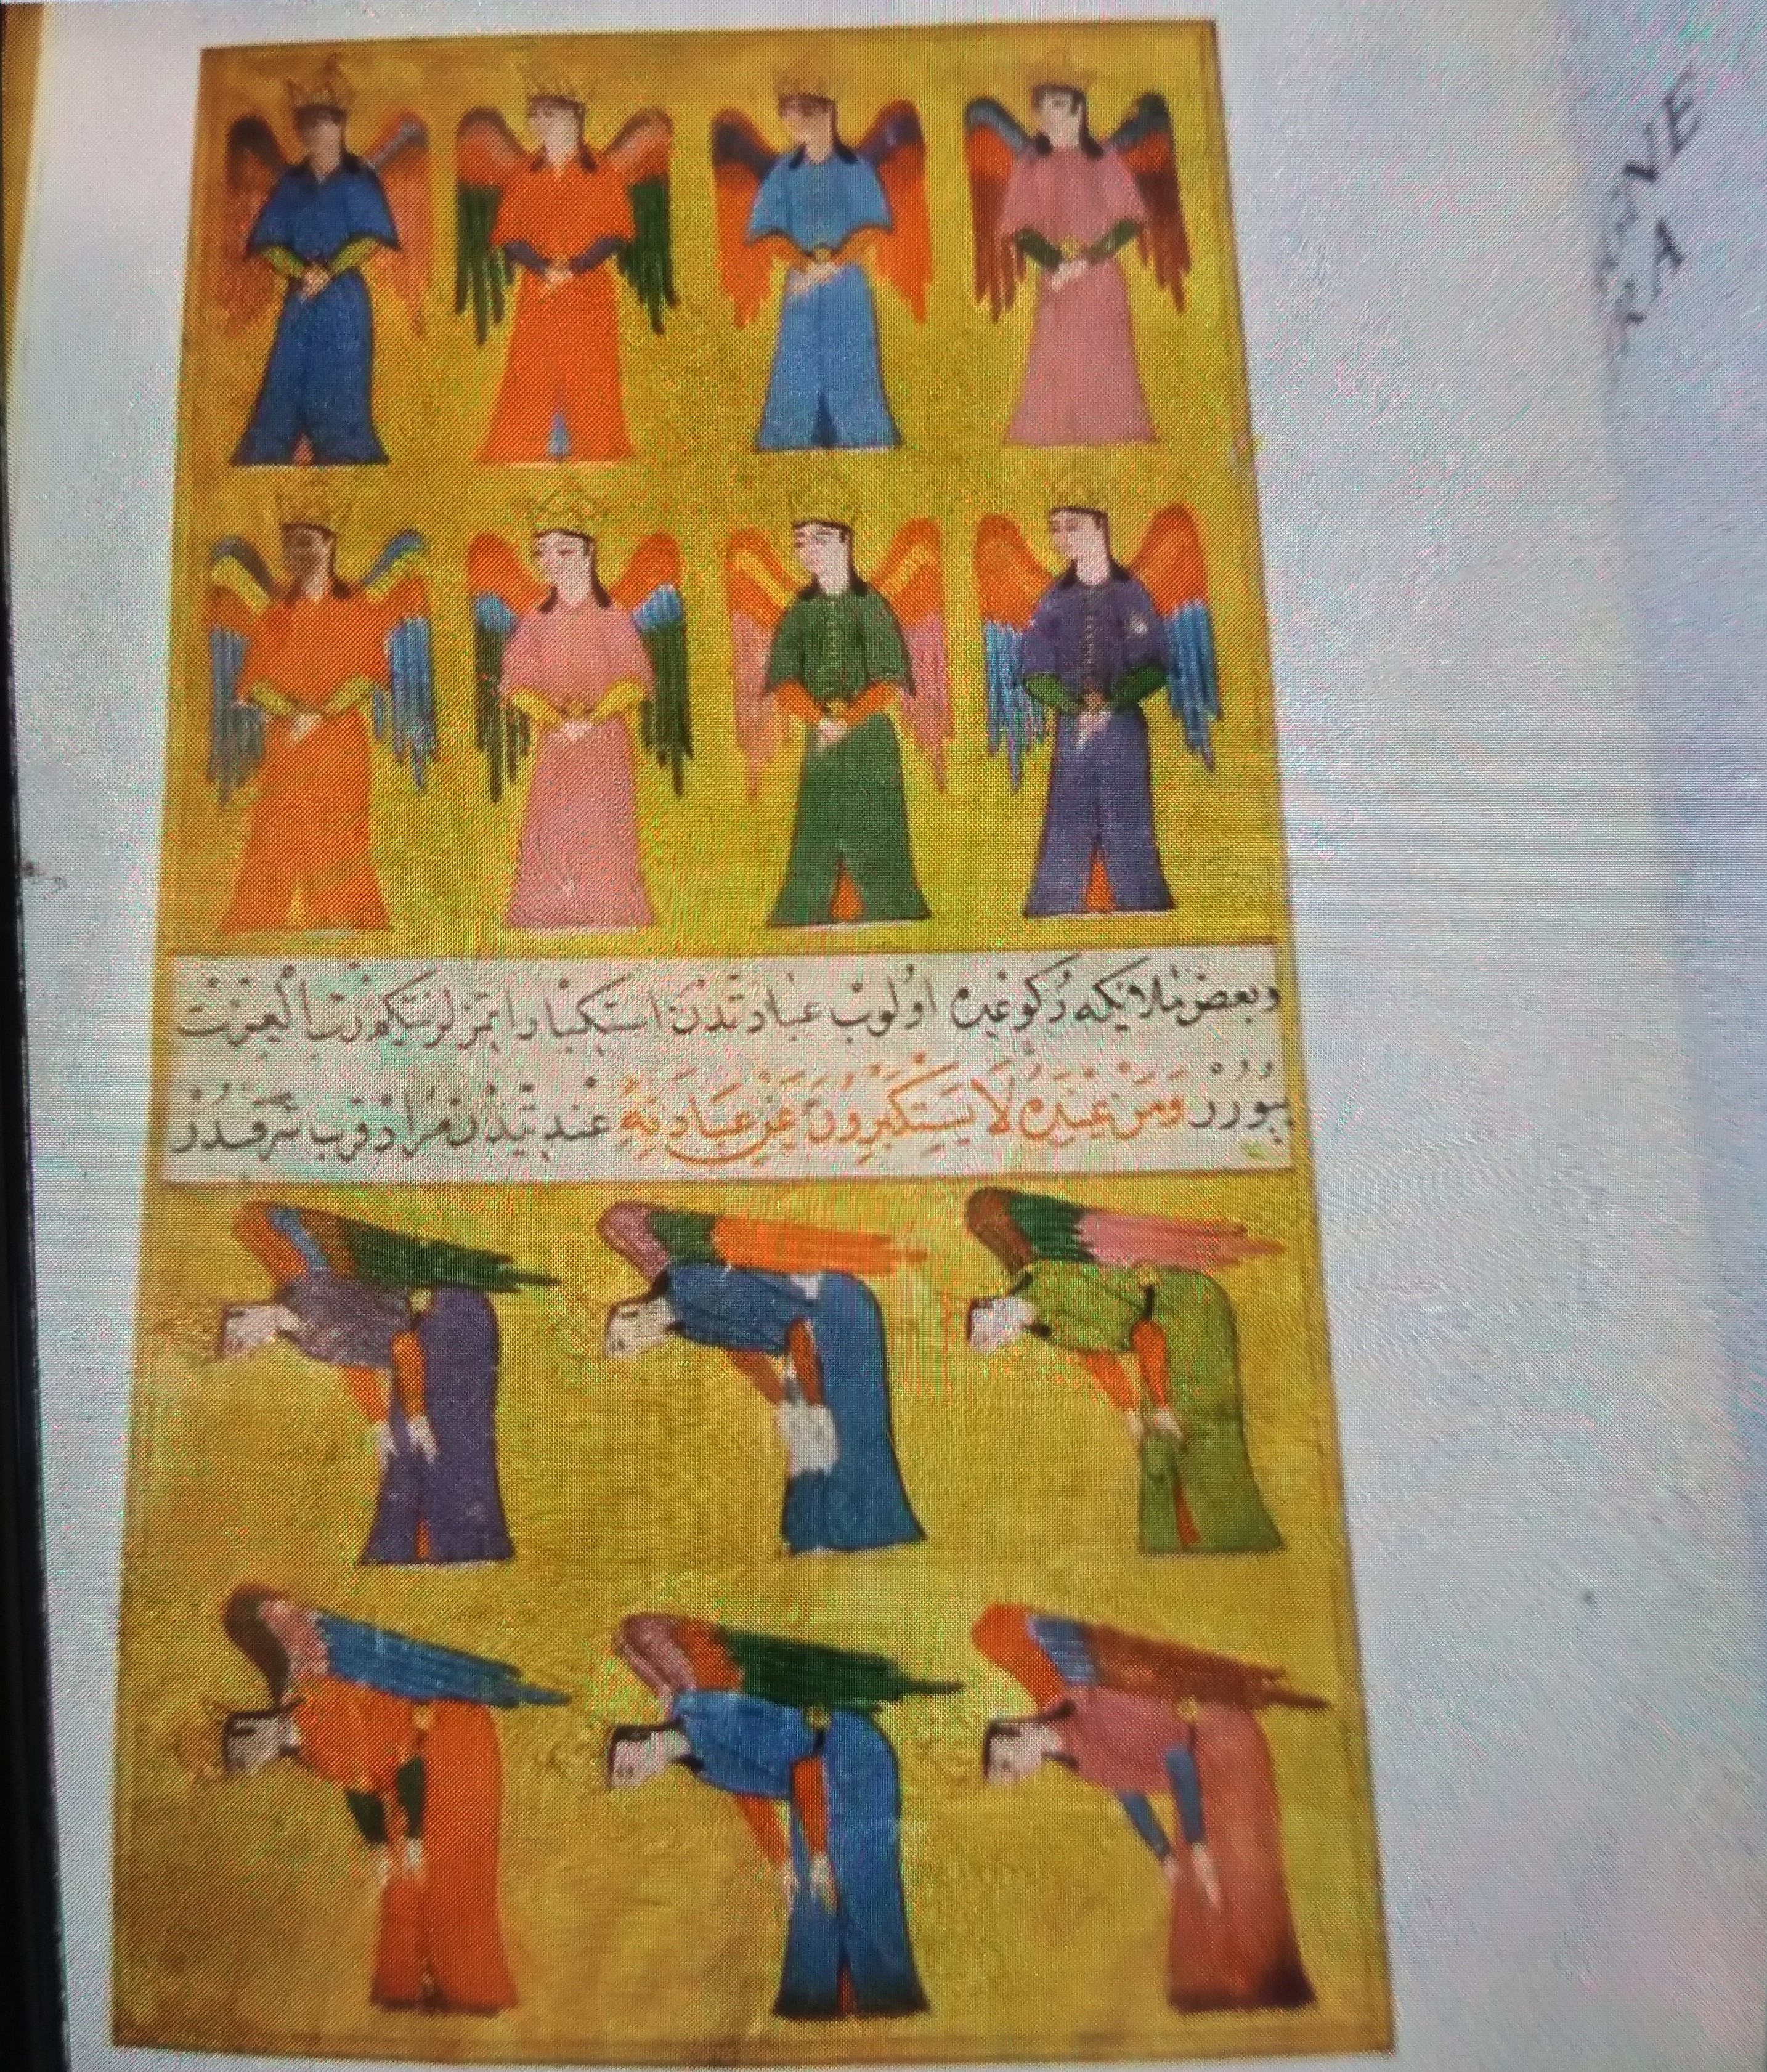 وبعض ملایكه ركوعده اولوب عبادتدن استكبارا تمزلر نتكم رب العزت
بیورر وَمَنْ عِنْدَهُ لَا يَسْتَكْبِرُونَ عَنْ عِبَادَتِهِ عند تیدن مراد قرب شرفدر
NE
RA